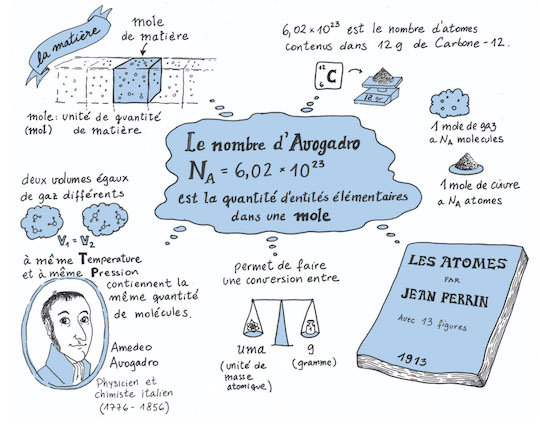 la matière
mole
de matière
mole : unité de quantité
(mol) de matière
6,02 × 10²³ est le nombre d'atomes
contenus dans 12 g de Carbone-12.
12
C
6
12 g
1 mole de gaz
a NA molécules
1 mole de cuivre
a NA atomes
Le nombre d'Avogadro
NA = 6,02 × 10²³
est la quantité d'entités élémentaires
dans une mole
deux volumes égaux
de gaz différents
V1 = V2
à même Temperature
et à même Pression
contiennent la
même quantité
de molécules.
Amedeo
Avogadro
Physicien et
chimiste italien
(1776 - 1856)
permet de faire
une conversion entre
uma
(unité de
masse
atomique)
g
(gramme)
LES ATOMES
PAR
JEAN PERRIN
Avec 13 figures
1913